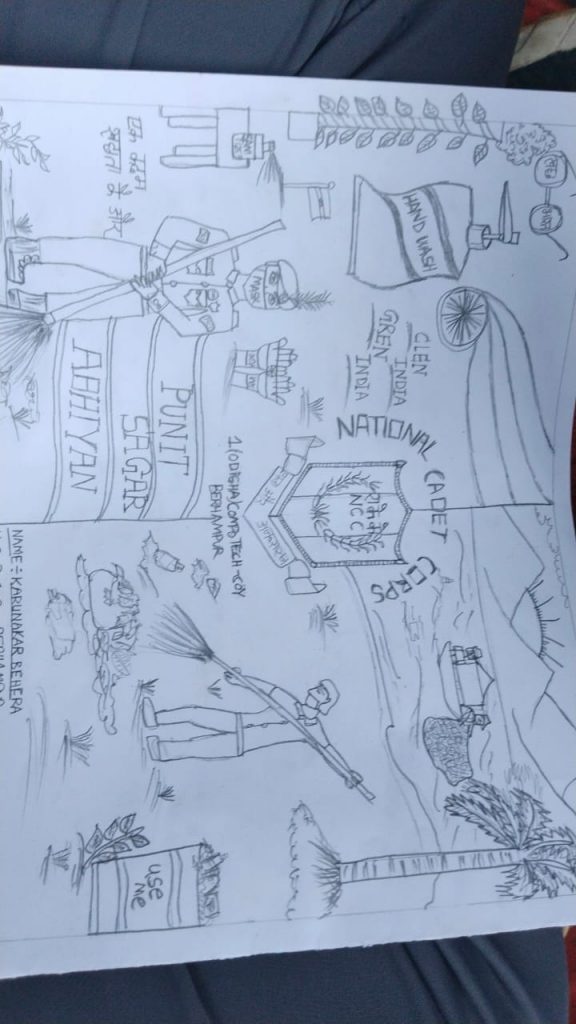 एक कदम
स्वच्छता के ओर
HAND WASH
CLEN
INDIA
GREN
INDIA
MASK
NATIONAL CADET CORPS
NCC
1(ODISHA)COMPO TECH-COY
BERHAMPUR
PUNIT
SAGAR
ABHIYAN
USE
ME
NAME:-KARUNAKAR BEHERA